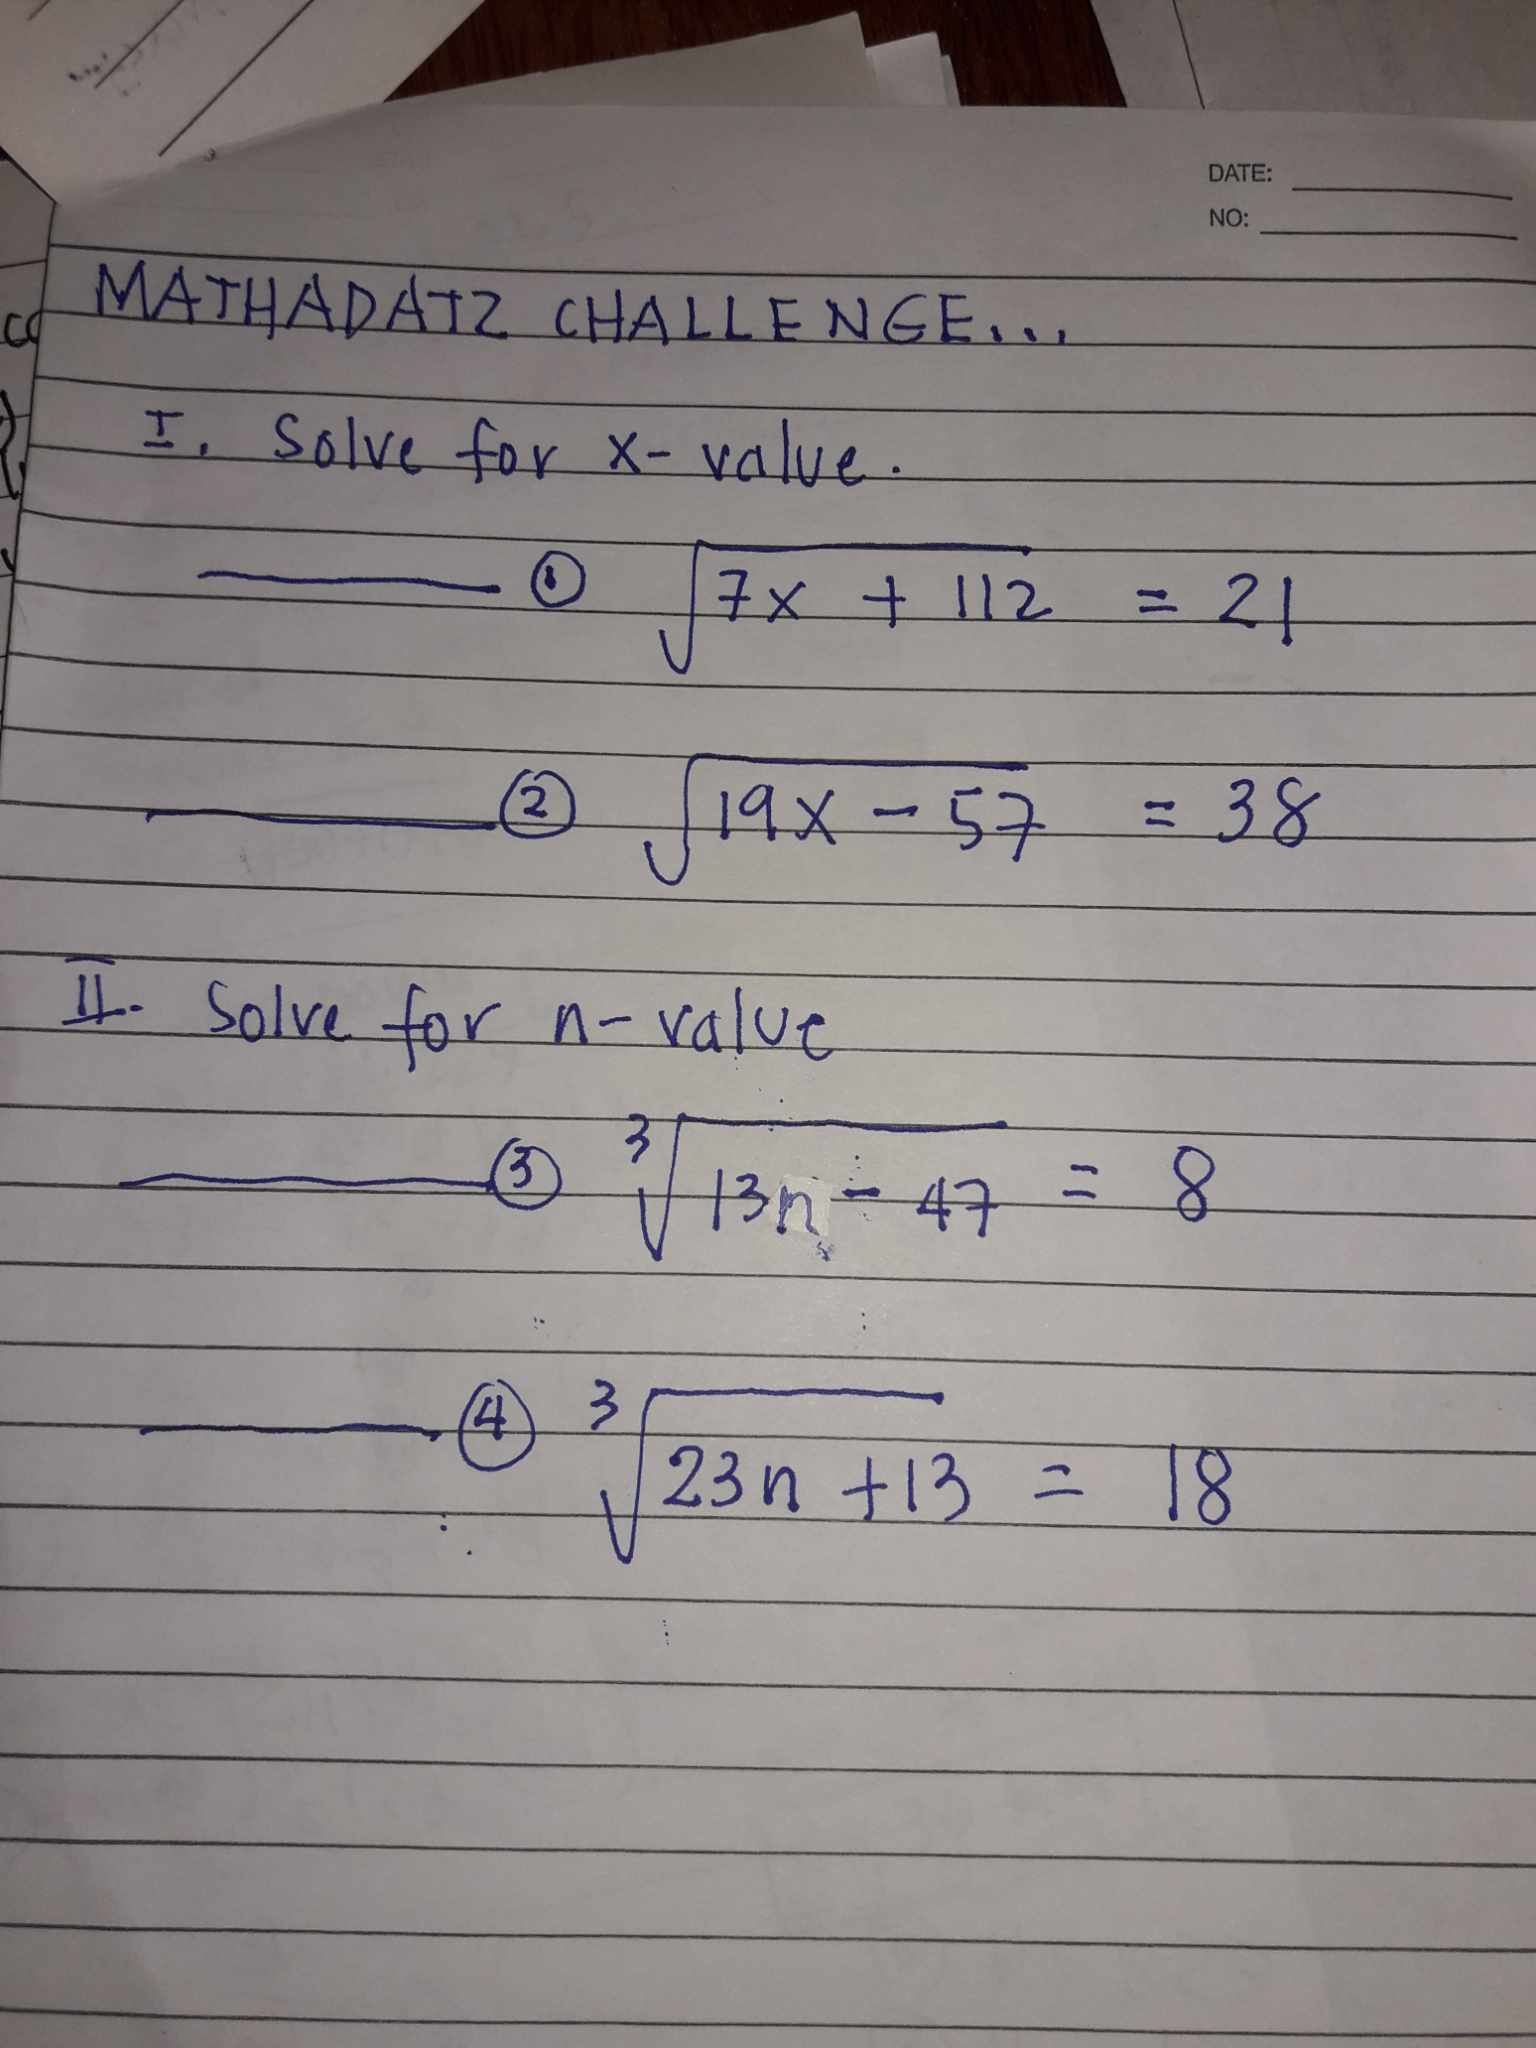 DATE:
NO:
MATHADATZ CHALLENGE...
I. Solve for x-value.
① √7x + 112 = 21
② √19x - 57 = 38
II. Solve for n-value
③ ³√13n - 47 = 8
④ ³√23n + 13 = 18